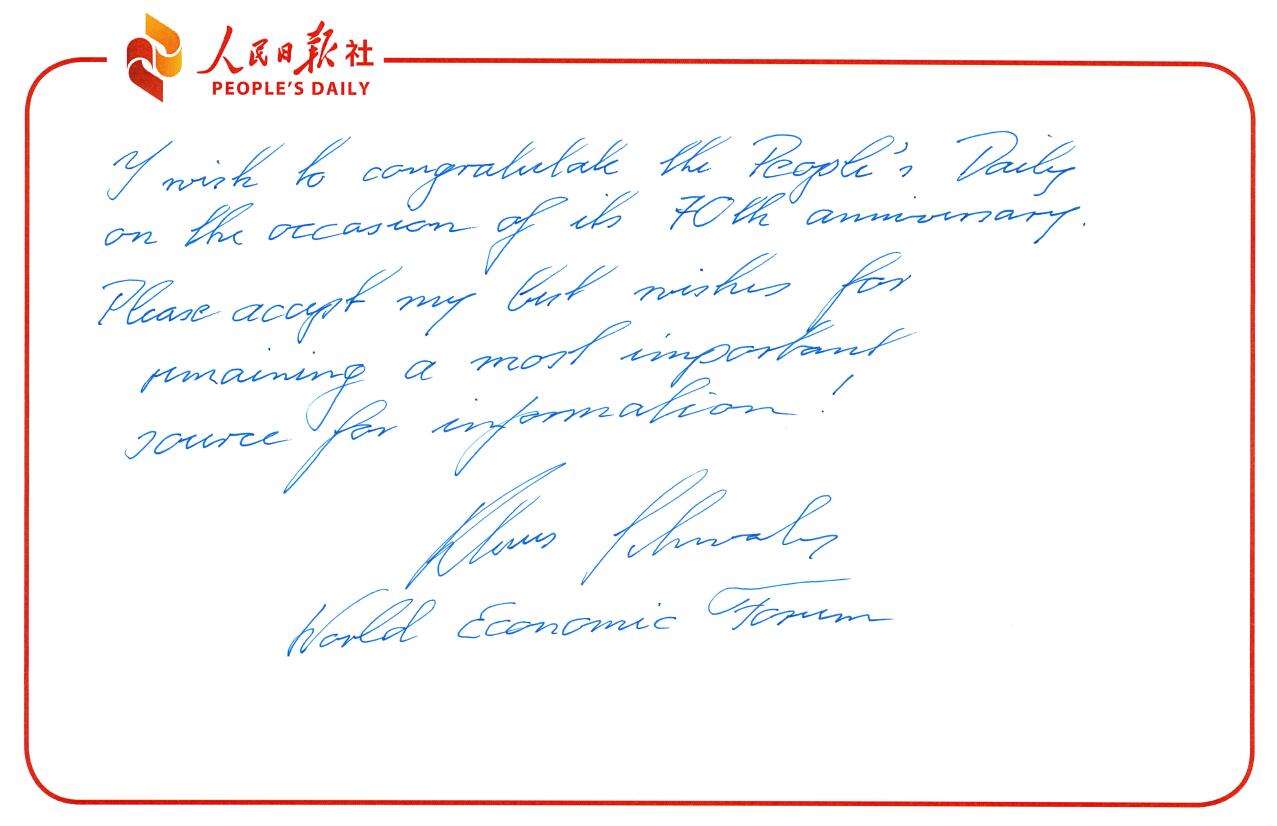 人民日报社
PEOPLE'S DAILY
I wish to congratulate the People's Daily
on the occasion of its 70th anniversary.
Please accept my best wishes for
remaining a most important
source for information!
Klaus Schwab
World Economic Forum